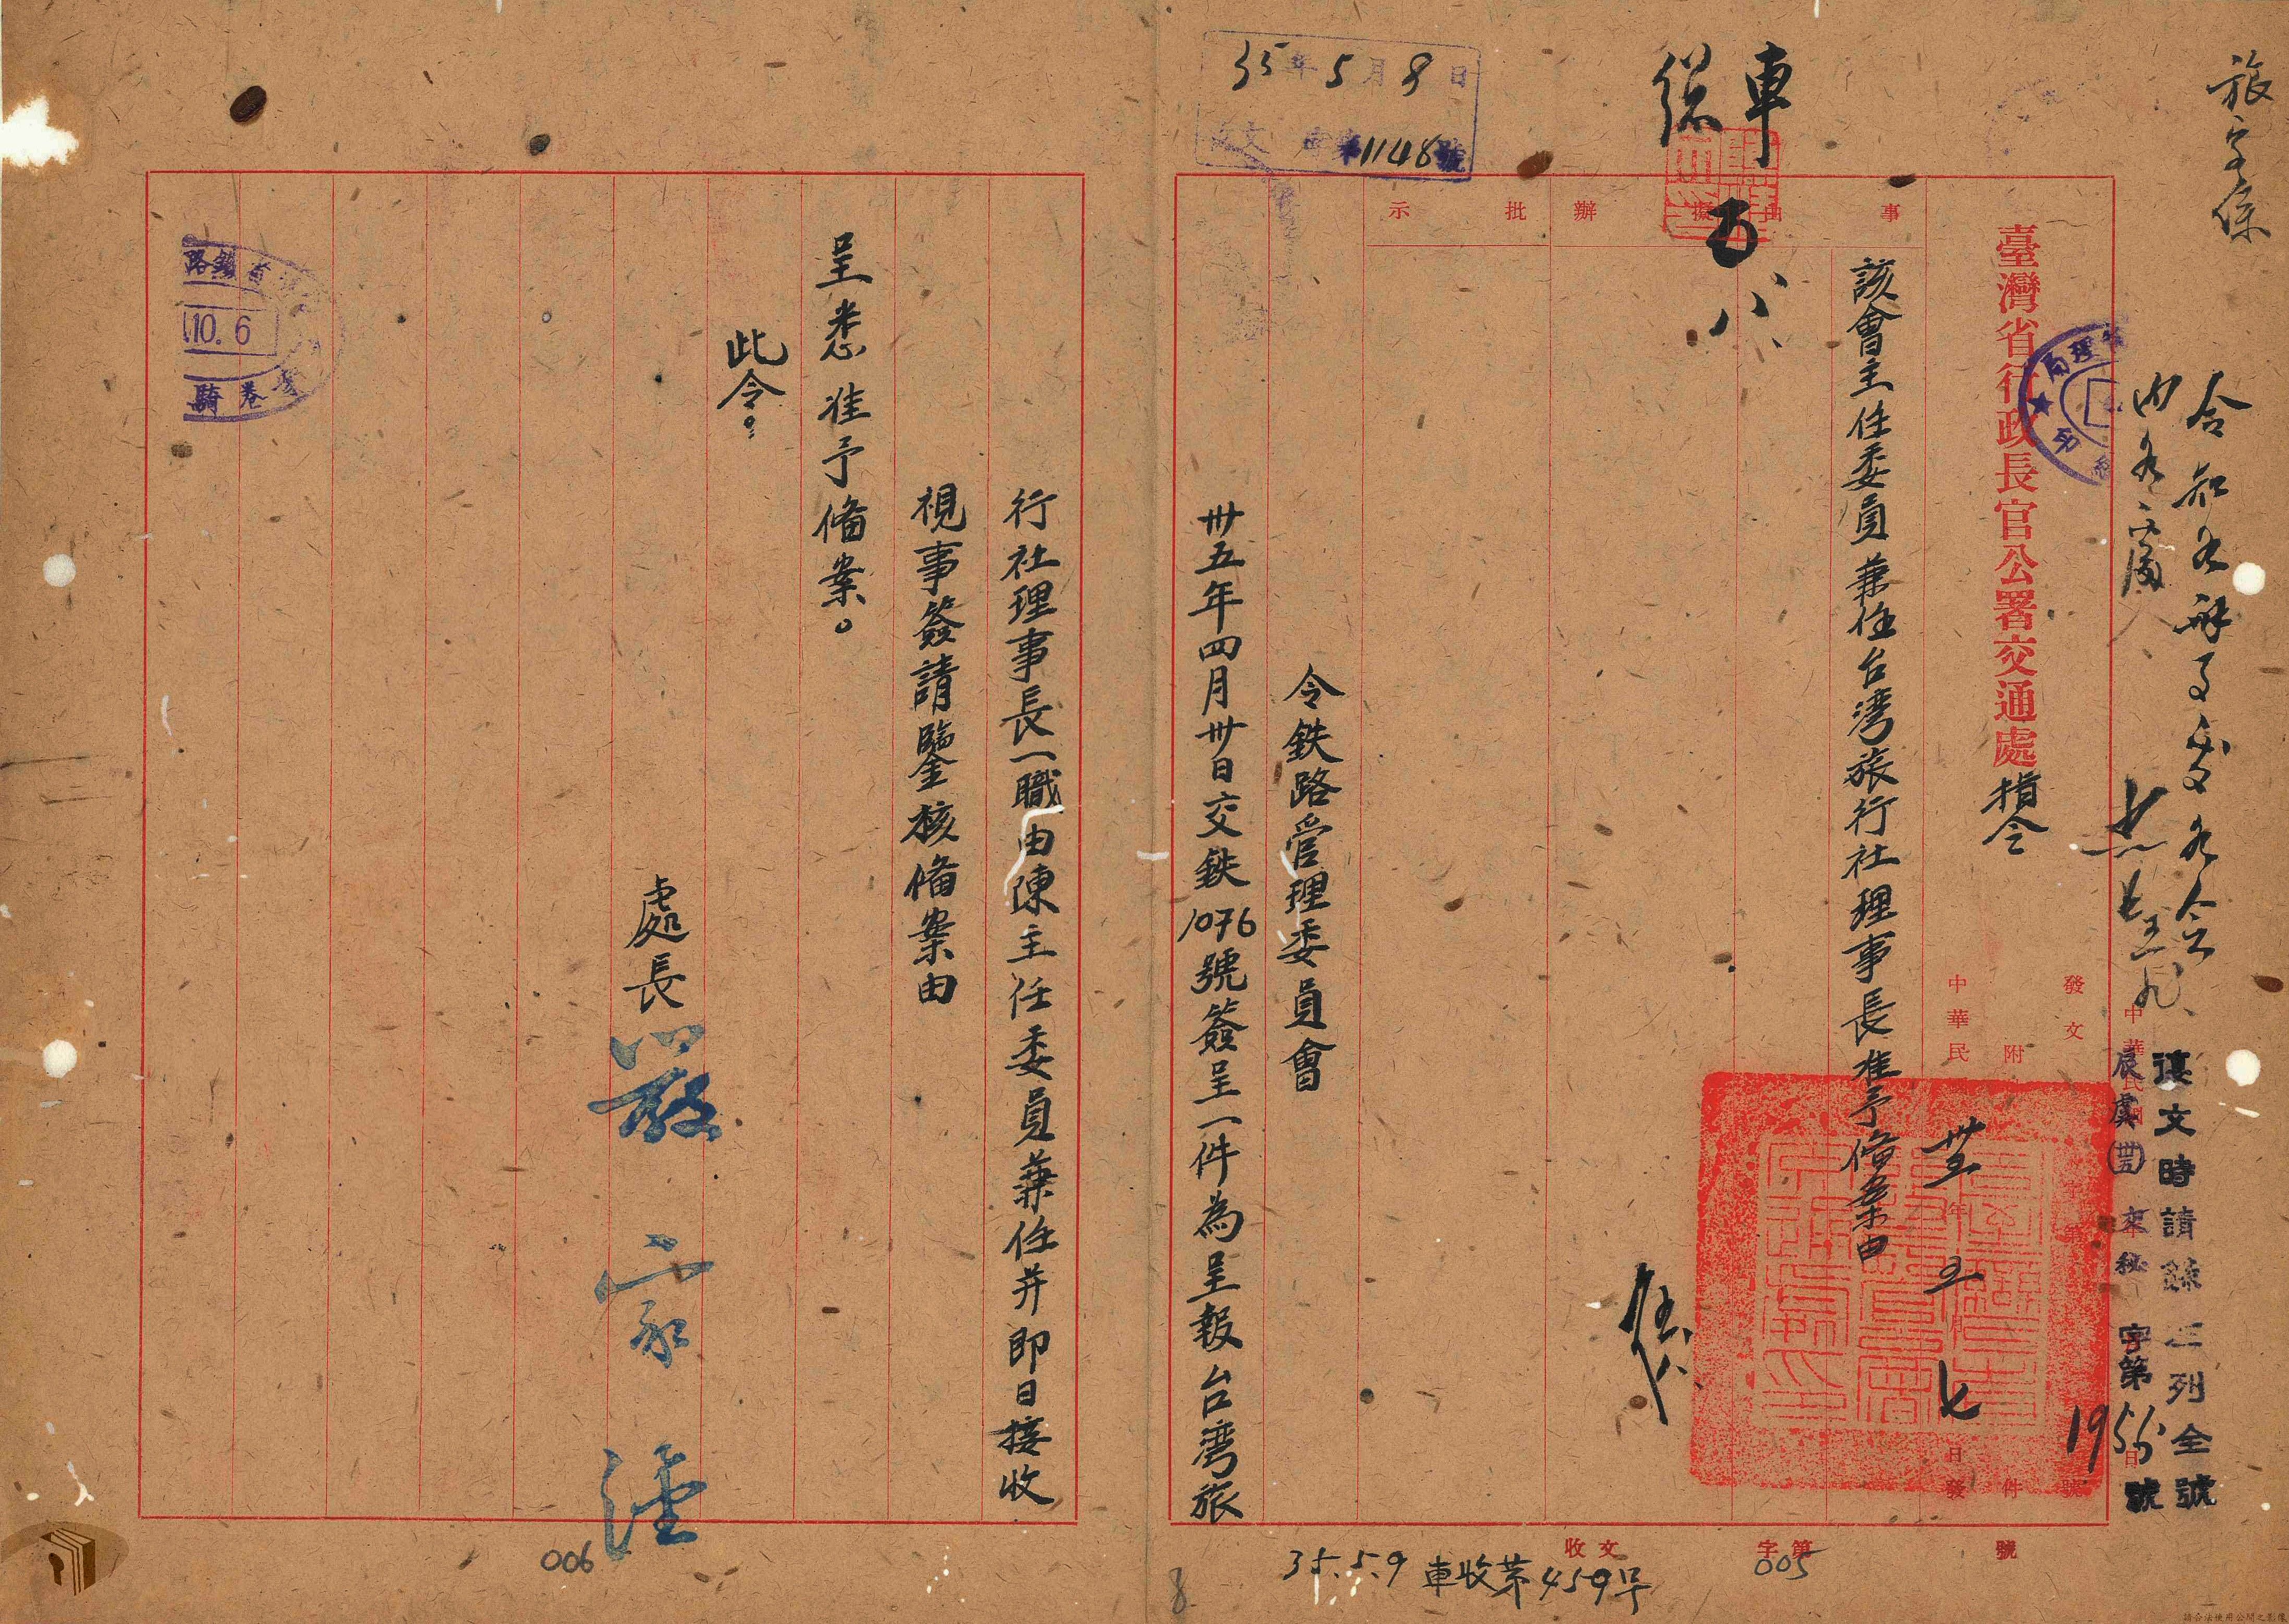 旅字停
令
35年5月8日
1148號
車
五八
示 批
辦 擬
由 事
臺灣省行政長官公署交通處指令
發文 字第 號
附 件
中華民 卅五年五月七日發
復文時請錄三列全號
辰虞(卅五)交秘字第1955號
該會主任委員兼任台灣旅行社理事長准予俻案由
令鉄路管理委員會
卅五年四月卅日交鉄1076號簽呈一件為呈報台湾旅
行社理事長一職由陳主任委員兼任并即日接收
視事簽請鑒核俻案由
呈悉准予俻案。
此令。
處長 嚴家淦
路鐵省
10.6
騎卷
收文 字第 號
35.5.9車收第459号
005
006
8